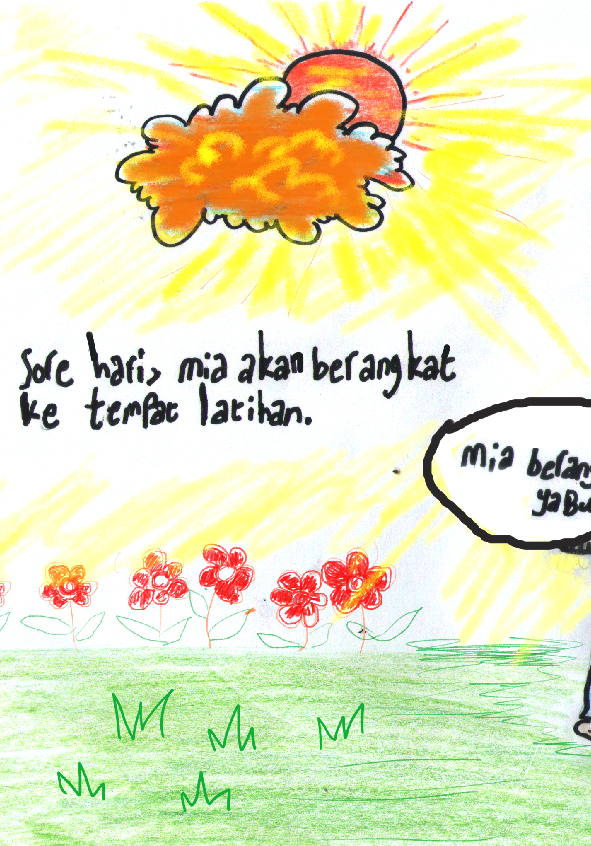 Sore hari, mia akan berangkat
ke tempat latihan.
mia berang
ya Bu